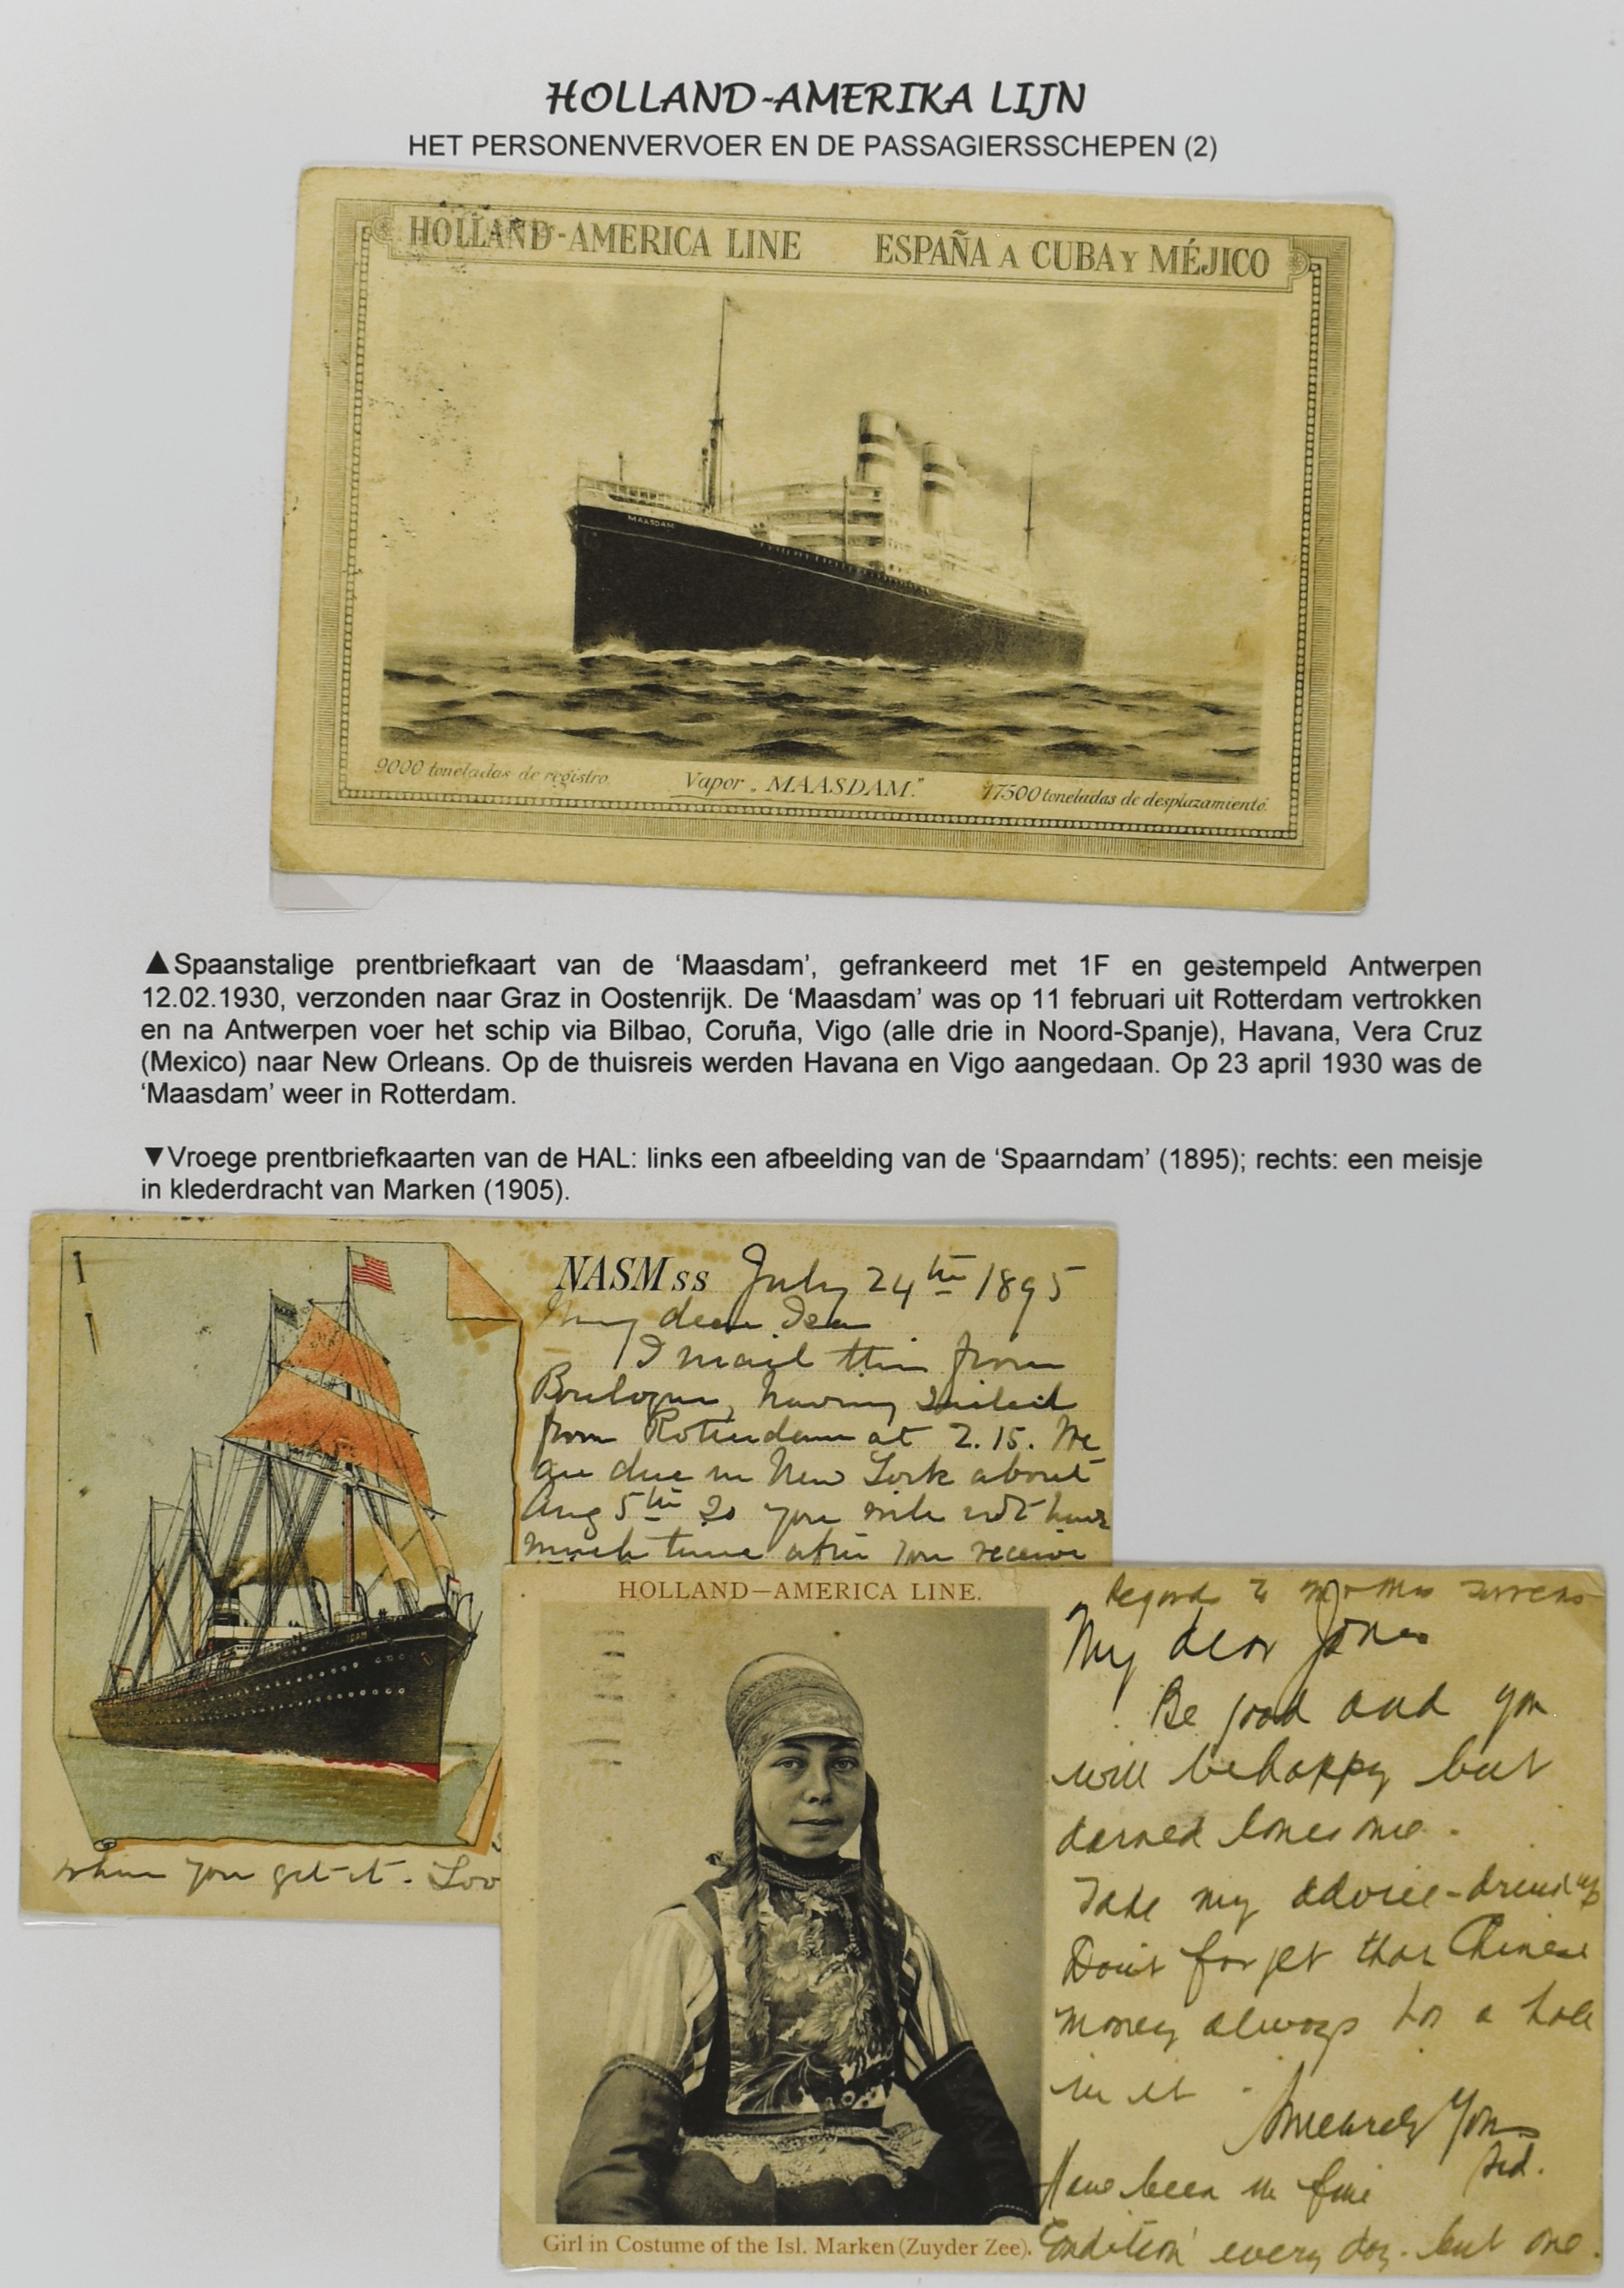 HOLLAND-AMERIKA LIJN
HET PERSONENVERVOER EN DE PASSAGIERSSCHEPEN (2)
HOLLAND-AMERICA LINE ESPAÑA A CUBA Y MÉJICO
MAASDAM
9000 toneladas de registro. Vapor „MAASDAM." 17500 toneladas de desplazamiento.
▲Spaanstalige prentbriefkaart van de ‘Maasdam’, gefrankeerd met 1F en gestempeld Antwerpen
12.02.1930, verzonden naar Graz in Oostenrijk. De ‘Maasdam’ was op 11 februari uit Rotterdam vertrokken
en na Antwerpen voer het schip via Bilbao, Coruña, Vigo (alle drie in Noord-Spanje), Havana, Vera Cruz
(Mexico) naar New Orleans. Op de thuisreis werden Havana en Vigo aangedaan. Op 23 april 1930 was de
‘Maasdam’ weer in Rotterdam.
▼Vroege prentbriefkaarten van de HAL: links een afbeelding van de ‘Spaarndam’ (1895); rechts: een meisje
in klederdracht van Marken (1905).
NASM ss July 24th 1895
My dear
I mail this from
Boulogne, having sailed
from Rotterdam at 2.15. We
are due in New York about
Aug 5th So you will not have
much time after you receive
when you get it. Lov
HOLLAND—AMERICA LINE.
Girl in Costume of the Isl. Marken (Zuyder Zee).
Regards to Mr & Mrs
My dear Jones
Be good and you
will be happy but
darned lonesome.
Take my advice -
Don't forget that Chinese
money always has a hole
in it -
Sincerely Yours
Have been in fine
Condition every day - but one.